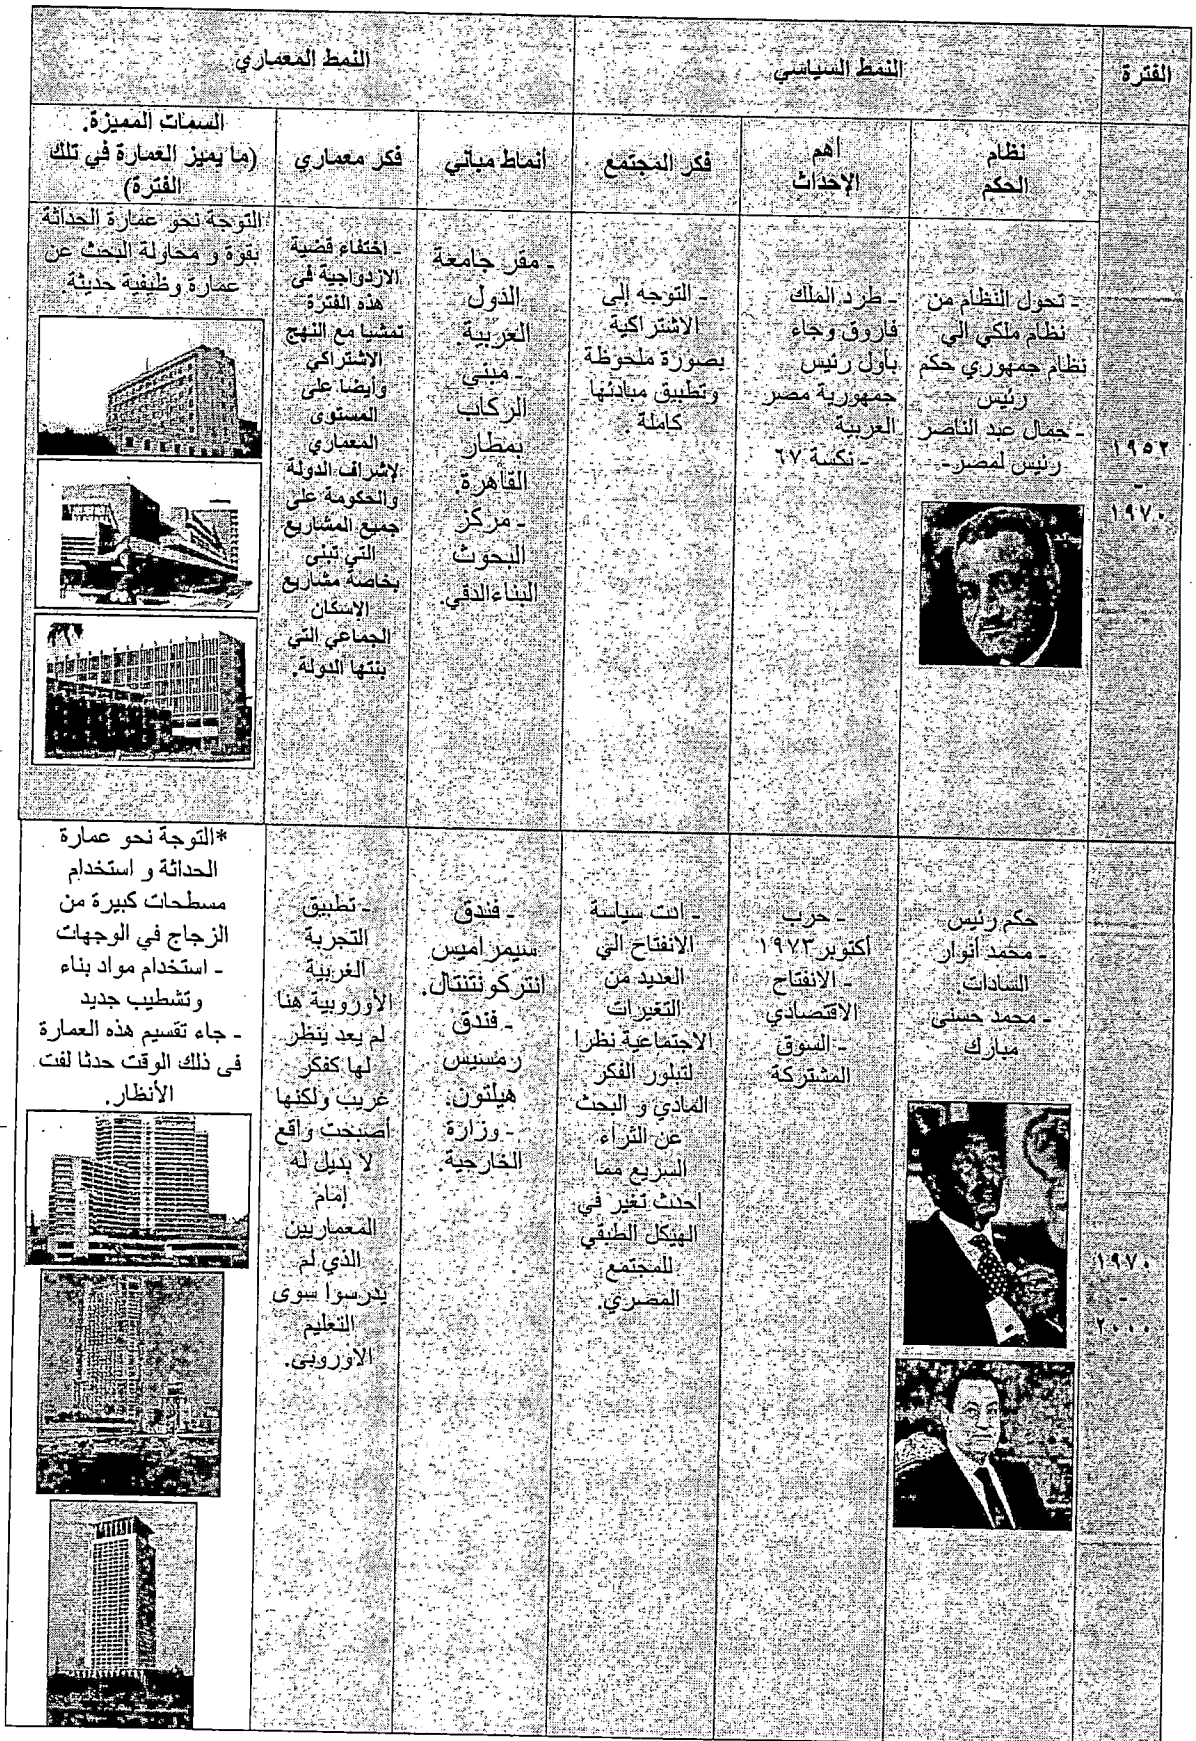 الفترة
النمط السياسي
النمط المعماري
نظام
الحكم
اهم
الإحداث
فكر المجتمع
أنماط مباني
فكر معماري
السمات المميزة.
(ما يميز العمارة في تلك
الفترة)
١٩٥٢
-
١٩٧٠
- تحول النظام من
نظام ملكي الي
نظام جمهوري حكم
رئيس
- جمال عبد الناصر
رئيس لمصر-
- طرد الملك
فاروق وجاء
بأول رئيس
جمهورية مصر
العربية
- نكسة ٦٧
- التوجه إلى
الاشتراكية
بصورة ملحوظة
وتطبيق مبادئها
كاملة .
- مقر جامعة
الدول
العربية.
- مبنى
الركاب
بمطار
القاهرة.
- مركز
البحوث
البناءالدقي.
- اختفاء قضية
الازدواجية فى
هذه الفترة
تمشيا مع النهج
الاشتراكي
وأيضا على
المستوى
المعماري
لإشراف الدولة
والحكومة على
جميع المشاريع
التي تبنى
بخاصة مشاريع
الإسكان
الجماعي التي
بنتها الدولة.
التوجة نحو عمارة الحداثة
بقوة و محاولة البحث عن
عمارة وظيفية حديثة
١٩٧٠
-
٢٠٠٠
حكم رئيس
- محمد أنوار
السادات
- محمد حسنى
مبارك
- حرب
أكتوبر ١٩٧٣
- الانفتاح
الاقتصادي
- السوق
المشتركة
- ادت سياسة
الانفتاح الي
العديد من
التغيرات
الاجتماعية نظرا
لتبلور الفكر
المادي و البحث
عن الثراء
السريع مما
احدث تغير في
الهيكل الطبقي
للمجتمع
المصري.
- فندق
سيمراميس
انتركونتنتال.
- فندق
رمسيس
هيلتون.
- وزارة
الخارجية
- تطبيق
التجربة
الغربية
الأوروبية هنا
لم يعد ينظر
لها كفكر
غريب ولكنها
أصبحت واقع
لا بديل له
إمام
المعماريين
الذي لم
يدرسوا سوى
التعليم
الاوروبي.
*التوجة نحو عمارة
الحداثة و استخدام
مسطحات كبيرة من
الزجاج في الوجهات
- استخدام مواد بناء
وتشطيب جديد
- جاء تقسيم هذه العمارة
فى ذلك الوقت حدثا لفت
الأنظار.